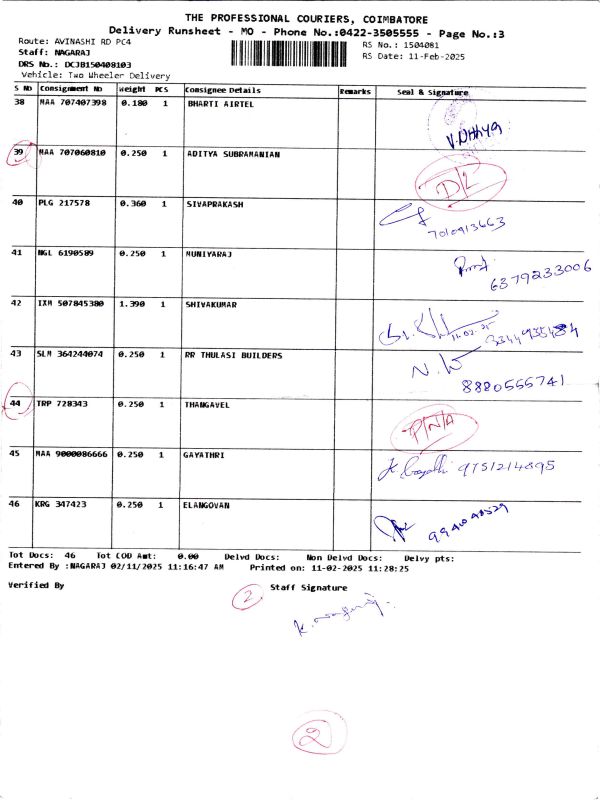 THE PROFESSIONAL COURIERS, COIMBATORE
Delivery Runsheet - MO - Phone No.:0422-3505555 - Page No.:3
Route: AVINASHI RD PC4
RS No.: 1504081
Staff: NAGARAJ
RS Date: 11-Feb-2025
DRS No.: DCJB150408103
Vehicle: Two Wheeler Delivery
S No Consignment No Weight PCS Consignee Details Remarks Seal & Signature
38 MAA 707407398 0.180 1 BHARTI AIRTEL
39 MAA 707060810 0.250 1 ADITYA SUBRAMANIAN D/L
40 PLG 217578 0.360 1 SIVAPRAKASH
7010913663
41 NGL 6190589 0.250 1 MUNIYARAJ
6379233006
42 IXM 507845380 1.390 1 SHIVAKUMAR
11.02.25
43 SLM 364244074 0.250 1 RR THULASI BUILDERS
8880555741
44 TRP 728343 0.250 1 THANGAVEL P/N/A
45 MAA 9000086666 0.250 1 GAYATHRI 9751214895
46 KRG 347423 0.250 1 ELANGOVAN
Tot Docs: 46 Tot COD Amt: 0.00 Delvd Docs: Non Delvd Docs: Delvy pts:
Entered By :NAGARAJ 02/11/2025 11:16:47 AM Printed on: 11-02-2025 11:28:25
Verified By Staff Signature
2
2